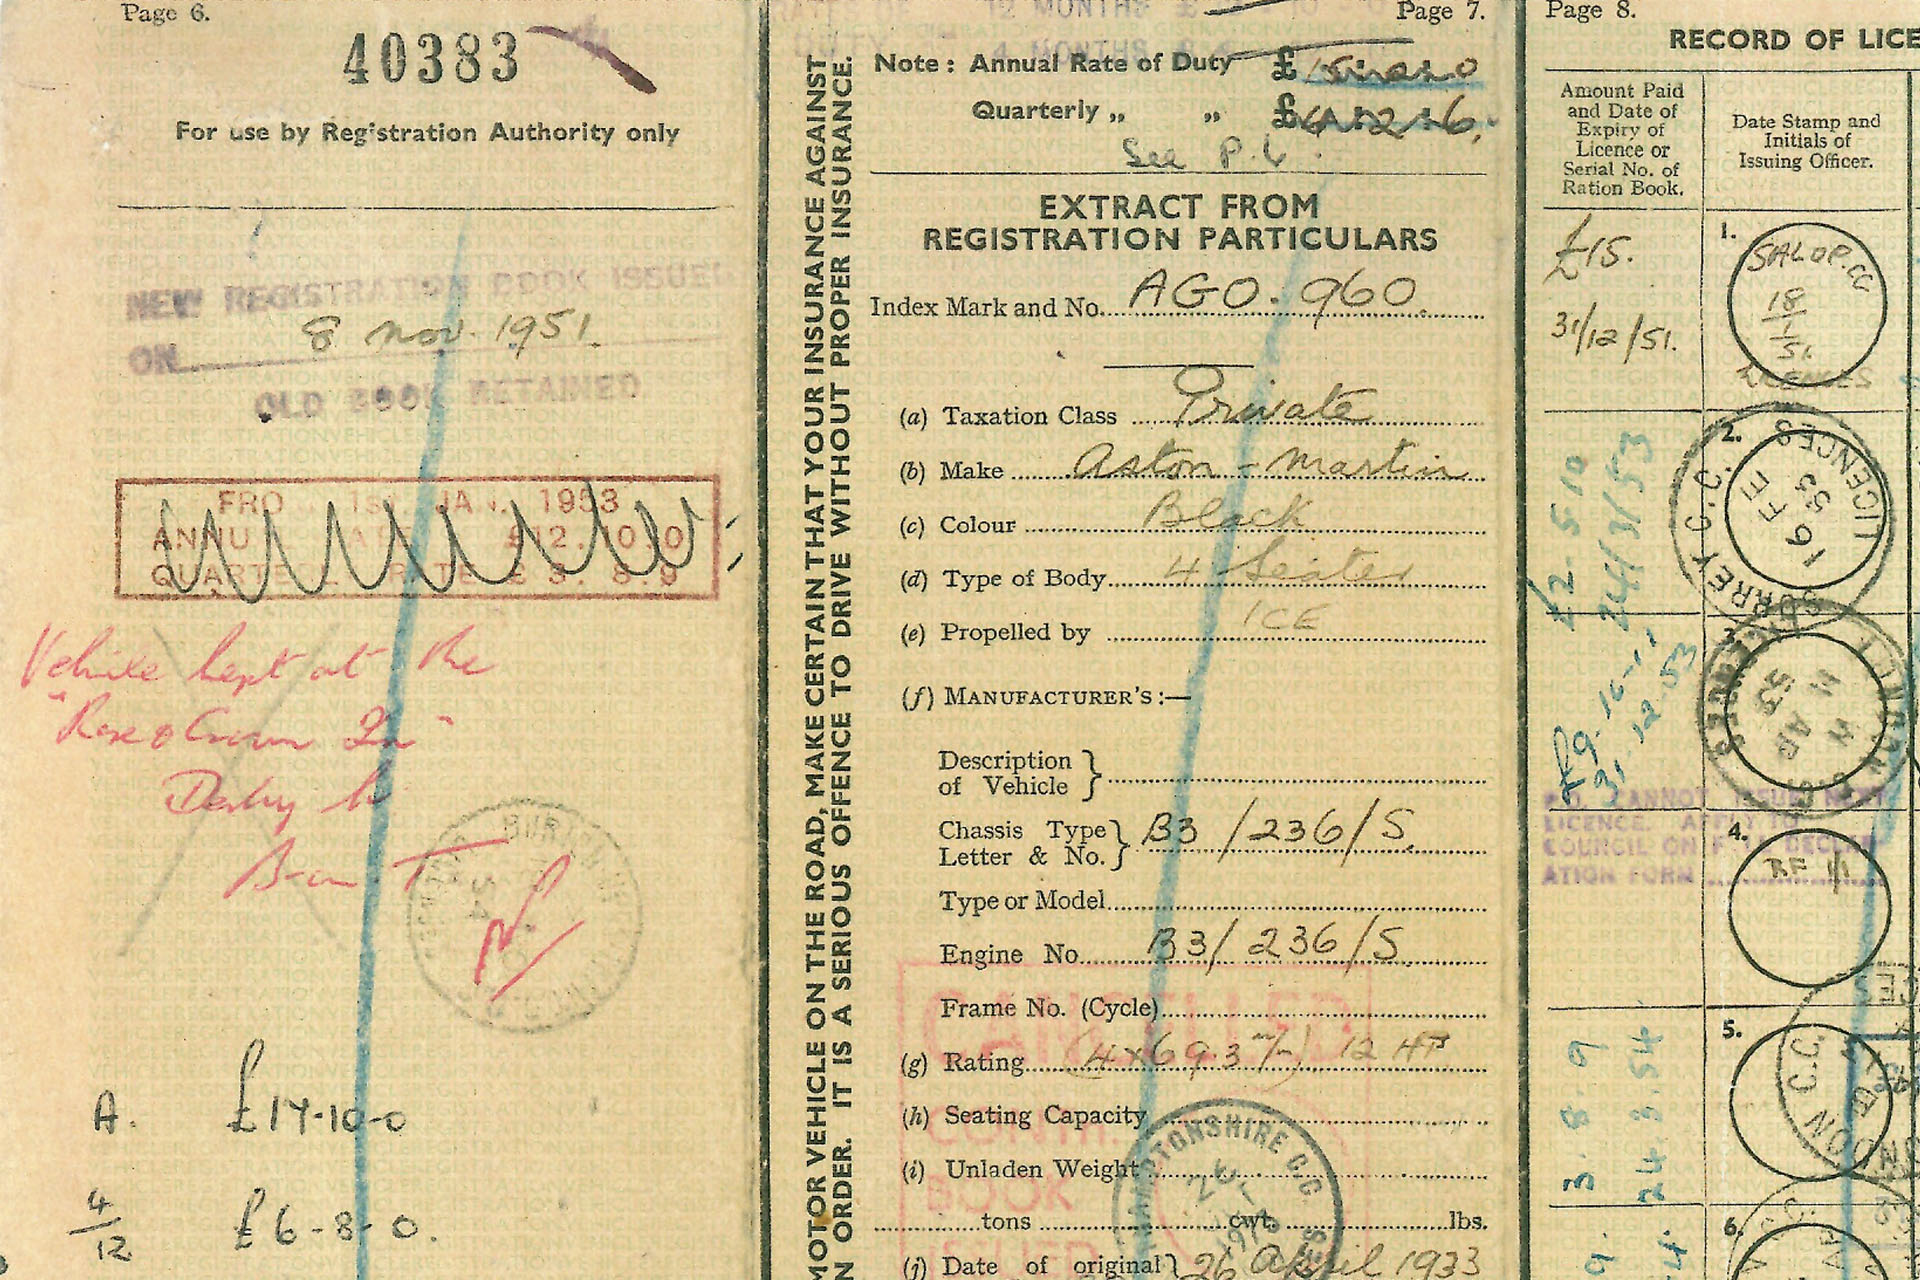 Page 6.
40383
For use by Registration Authority only
NEW REGISTRATION BOOK ISSUED
8 Nov. 1951.
ON
OLD BOOK RETAINED
1st JAN. 1953
£12.10.0
£3.8.9
Vehicle kept at the
"Rose & Crown Inn"
Derby
A. £17-10-0
4/12 £6-8-0.
MOTOR VEHICLE ON THE ROAD, MAKE CERTAIN THAT YOUR INSURANCE AGAINST
ORDER. IT IS A SERIOUS OFFENCE TO DRIVE WITHOUT PROPER INSURANCE.
12 MONTHS
4 MONTHS
Page 7.
Note: Annual Rate of Duty £
Quarterly „ „ £
See P. 6.
EXTRACT FROM
REGISTRATION PARTICULARS
Index Mark and No. AGO.960
(a) Taxation Class Private
(b) Make Aston-Martin
(c) Colour Black
(d) Type of Body 4 Seater
(e) Propelled by ICE
(f) MANUFACTURER'S:—
Description
of Vehicle
Chassis Type
Letter & No. B3/236/S.
Type or Model
Engine No. B3/236/S.
Frame No. (Cycle)
(g) Rating (4x69.3 m/m) 12 HP
(h) Seating Capacity
(i) Unladen Weight
tons cwt. lbs.
(j) Date of original 26 April 1933
CANCELLED
CONTN.
BOOK
ISSUED
Page 8.
RECORD OF LICE
Amount Paid
and Date of
Expiry of
Licence or
Serial No. of
Ration Book.
Date Stamp and
Initials of
Issuing Officer.
£15.
31/12/51.
1.
SALOP.CC
18
1
51.
LICENCES
£2 5 10
24/3/53
2.
SURREY C.C. LICENCES
16 FE
53
31.12.53
3.
P.O. CANNOT ISSUE NEXT
LICENCE. APPLY TO
COUNCIL ON FULL DECLAR
ATION FORM
4.
RF 1/1
3.8.9
24.3.54
5.
6.